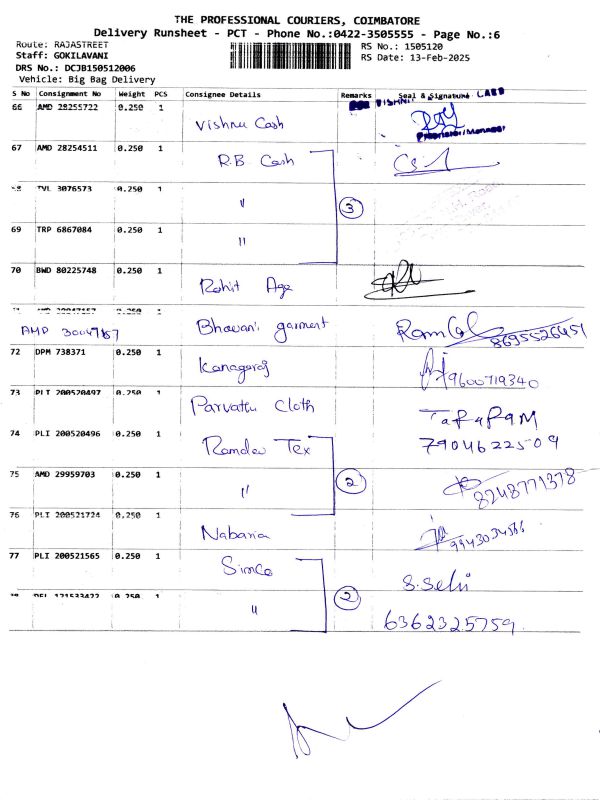 THE PROFESSIONAL COURIERS, COIMBATORE
Delivery Runsheet - PCT - Phone No.:0422-3505555 - Page No.:6
Route: RAJASTREET
RS No.: 1505120
Staff: GOKILAVANI
RS Date: 13-Feb-2025
DRS No.: DCJB150512006
Vehicle: Big Bag Delivery
S No Consignment No Weight PCS Consignee Details Remarks Seal & Signature
66 AMD 28255722 0.250 1 Vishnu Cash
Proprietor/Manager
67 AMD 28254511 0.250 1 R.B Cash
68 TVL 3076573 0.250 1 〃
3
69 TRP 6867084 0.250 1 〃
70 BWD 80225748 0.250 1 Rohit Age
AMD 30047157 0.250 1 Bhavani garment 8695526451
72 DPM 738371 0.250 1 Kanagaraj 9600719340
73 PLI 200520497 0.250 1 Parvathi Cloth TaRaRam
74 PLI 200520496 0.250 1 Ramdev Tex 7904622509
2
75 AMD 29959703 0.250 1 〃 8248771378
76 PLI 200521724 0.250 1 Nabaria
77 PLI 200521565 0.250 1 Simco S. Selvi
2
78 DEL 121533422 0.250 1 〃 6362325759